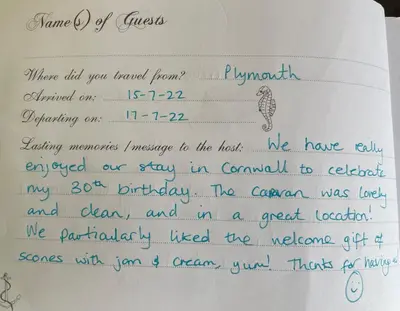 Name(s) of Guests
Where did you travel from? Plymouth
Arrived on: 15-7-22
Departing on: 17-7-22
Lasting memories / message to the host: We have really
enjoyed our stay in Cornwall to celebrate
my 30th birthday. The caravan was lovely
and clean, and in a great location!
We particularly liked the welcome gift of
scones with jam & cream, yum! Thanks for having